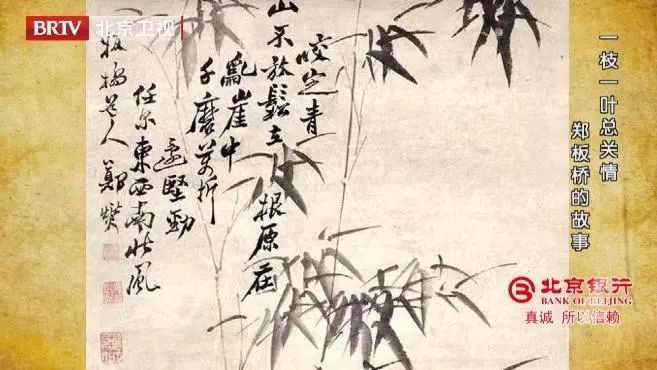 BRTV 北京卫视
一枝一叶总关情
郑板桥的故事
咬定青
山不放鬆立
根原在
亂崖中
千磨萬折
還堅勁
任尔東西南北風
板橋道人鄭燮
北京银行
BANK OF BEIJING
真诚 所以信赖